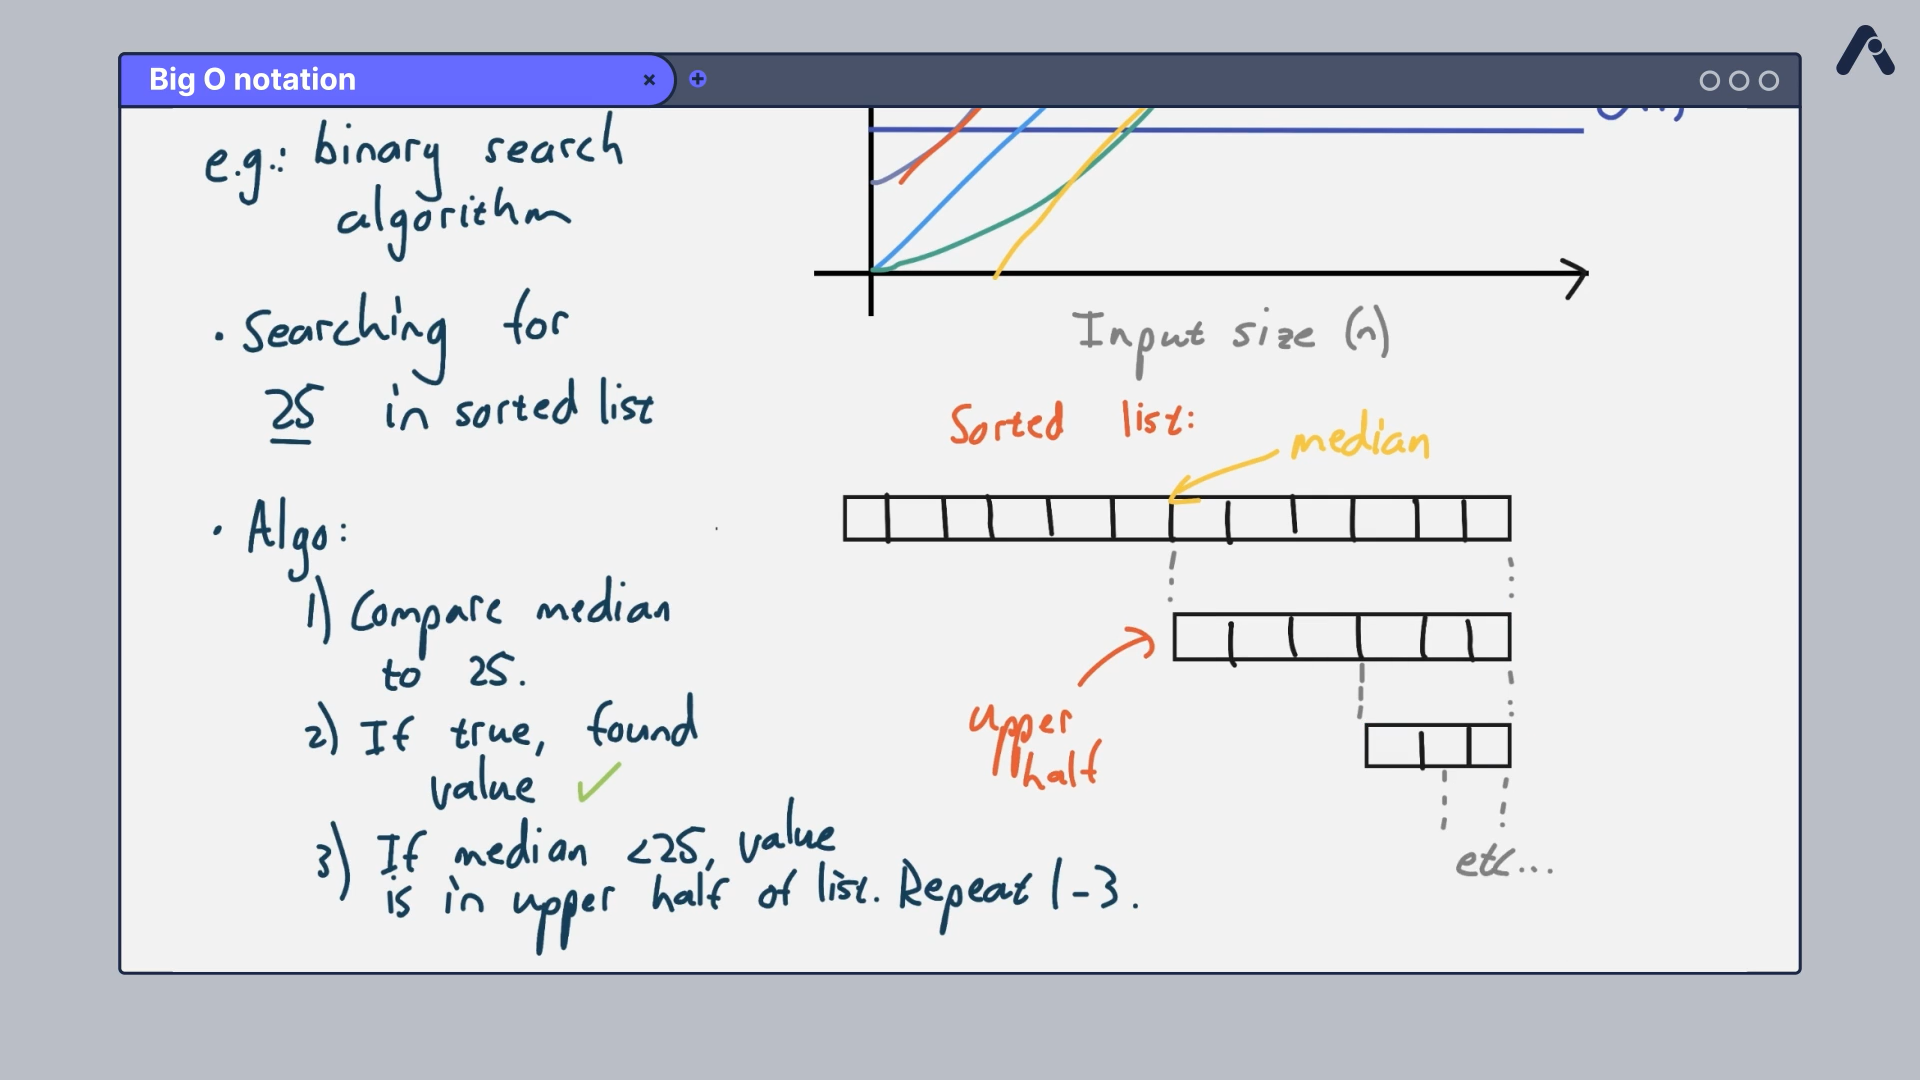 Big O notation
e.g.: binary search
algorithm
• Searching for
25 in sorted list
• Algo:
1) Compare median
to 25.
2) If true, found
value ✓
3) If median <25, value
is in upper half of list. Repeat 1-3.
Input size (n)
Sorted list:
median
upper
half
etc...